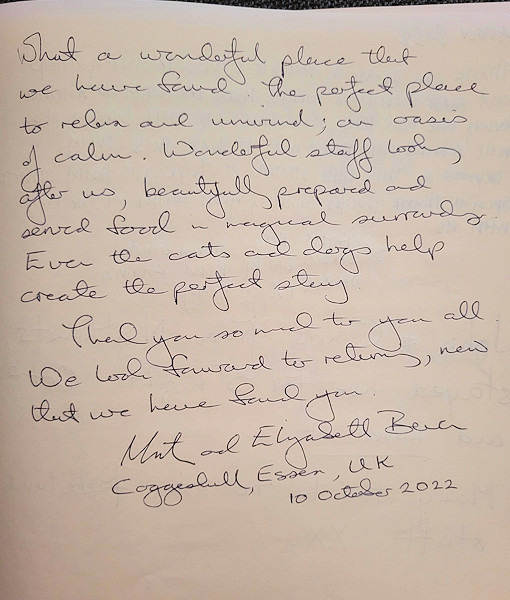 What a wonderful place that
we have found. The perfect place
to relax and unwind; an oasis
of calm. Wonderful staff looking
after us, beautifully prepared and
served food in magical surroundings.
Even the cats and dogs help
create the perfect stay
Thank you so much to you all.
We look forward to returning, now
that we have found you.
and Elizabeth
Coggeshall, Essex, UK
10 October 2022